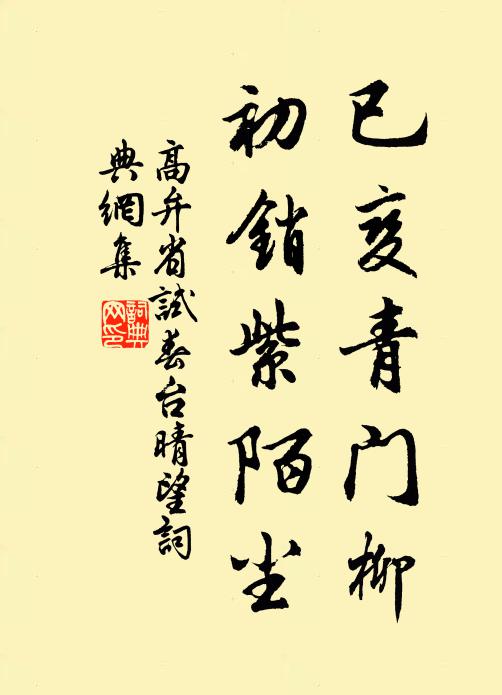 已变青门柳
初銷紫陌尘
高弁省試春台晴望詞
典網集
詞典
网印